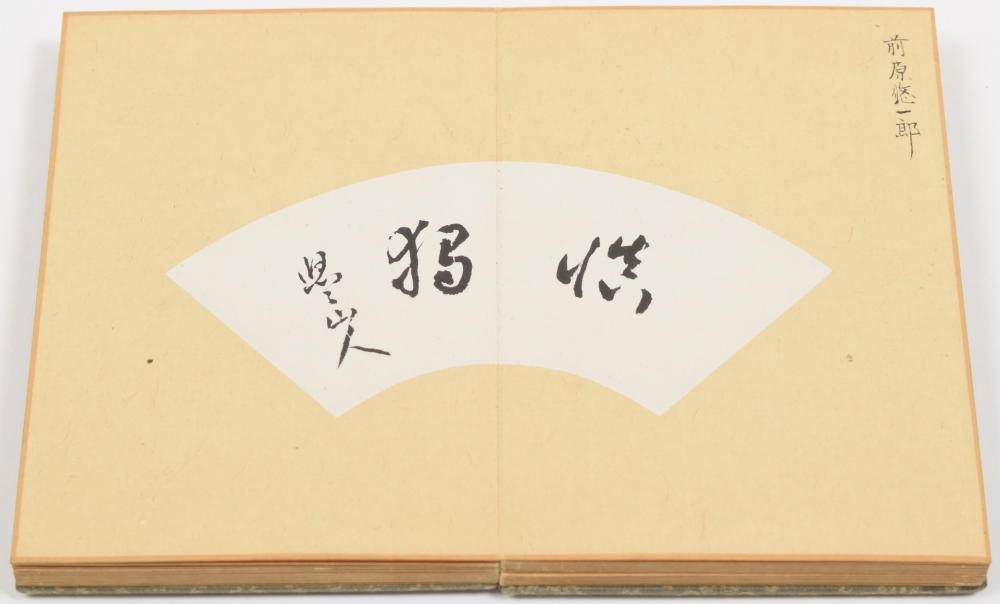 前原悠一郎
慎
獨
山人